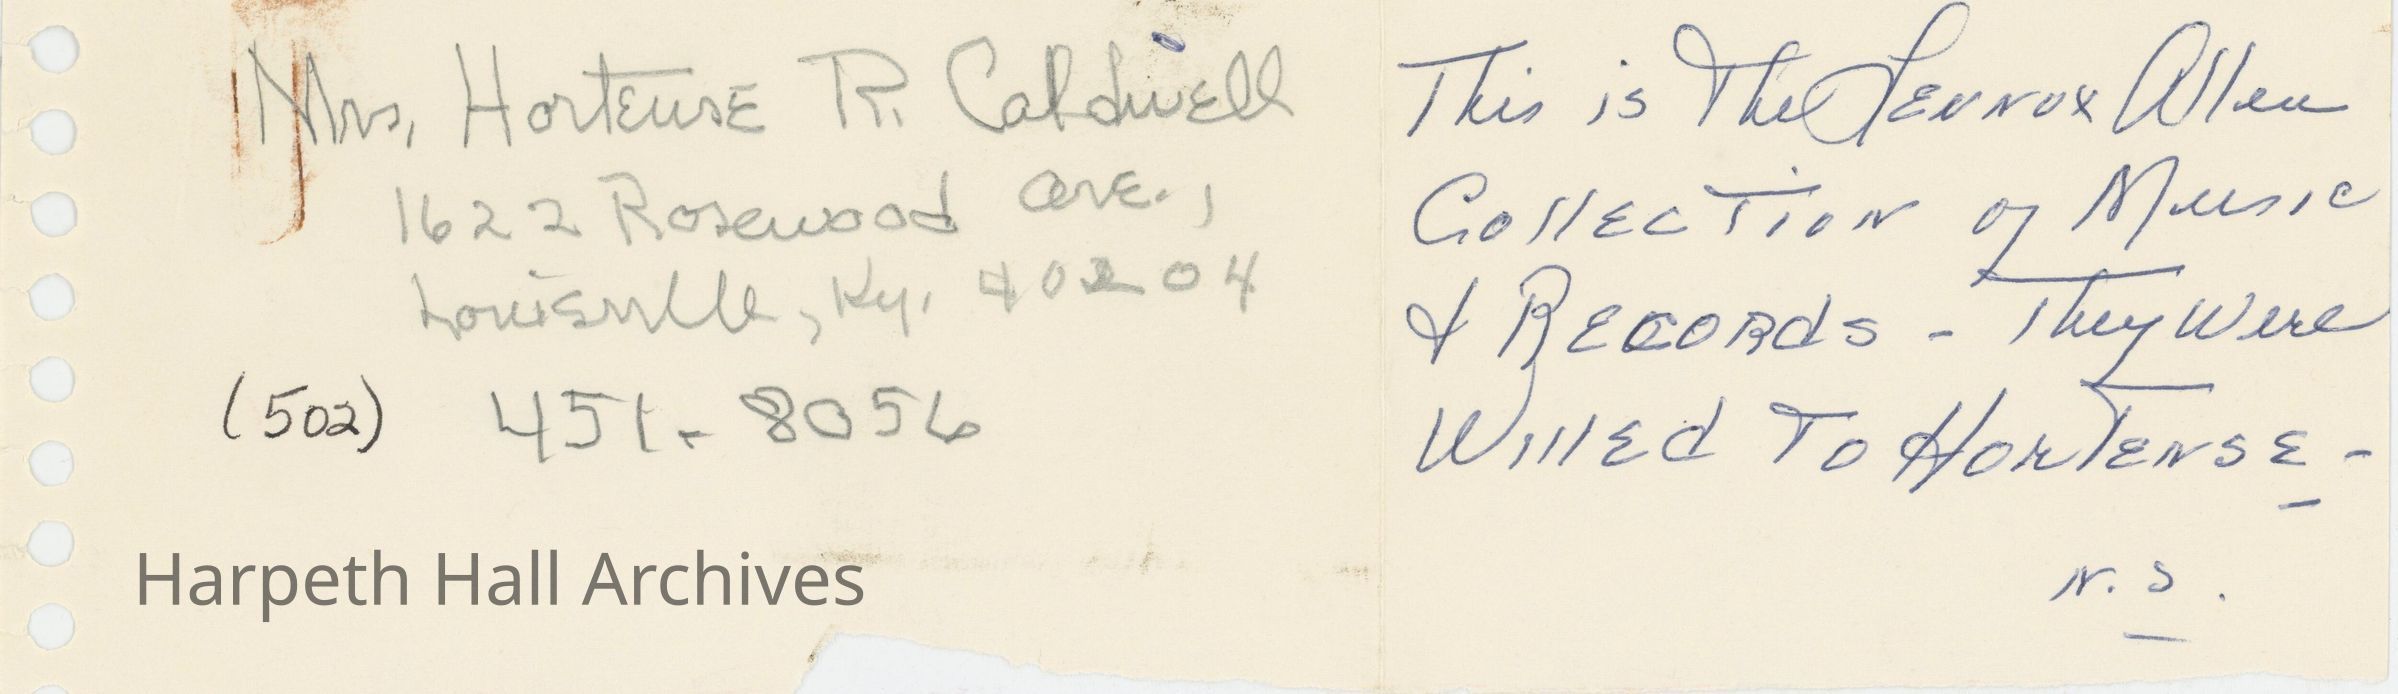 Mrs. Hortense R. Caldwell
1622 Rosewood Ave.,
Louisville, Ky. 40204
(502) 451-8056
Harpeth Hall Archives
This is The Lennox Allen
Collection of Music
& Records - They Were
Willed To Hortense -
N.S.